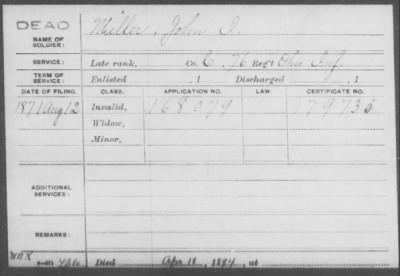 DEAD
NAME OF SOLDIER: Miller, John I.
SERVICE: Late rank, Co. C, 76 Reg't Ohio Inf.
TERM OF SERVICE: Enlisted , 1 Discharged , 1
DATE OF FILING. CLASS. APPLICATION NO. LAW. CERTIFICATE NO.
1871 Aug 12 Invalid, 168079 179735
Widow,
Minor,
ADDITIONAL SERVICES:
REMARKS:
Died Apr. 11, 1894, at